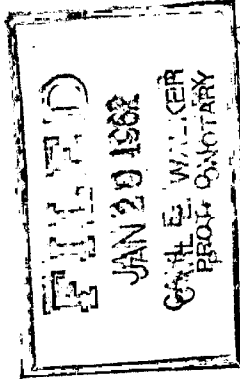 FILED
JAN
CARL E. WALKER
PROTHONOTARY